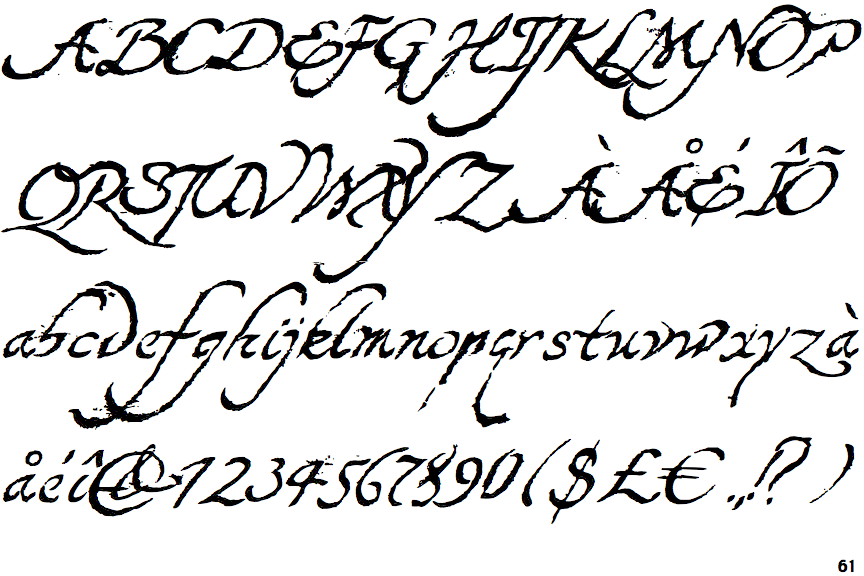 ABCDEFGHIJKLMNOP
QRSTUVWXYZÀÅÉÎÕ
abcdefghijklmnopqrstuvwxyzà
åéî&1234567890($£€.,!?)
61